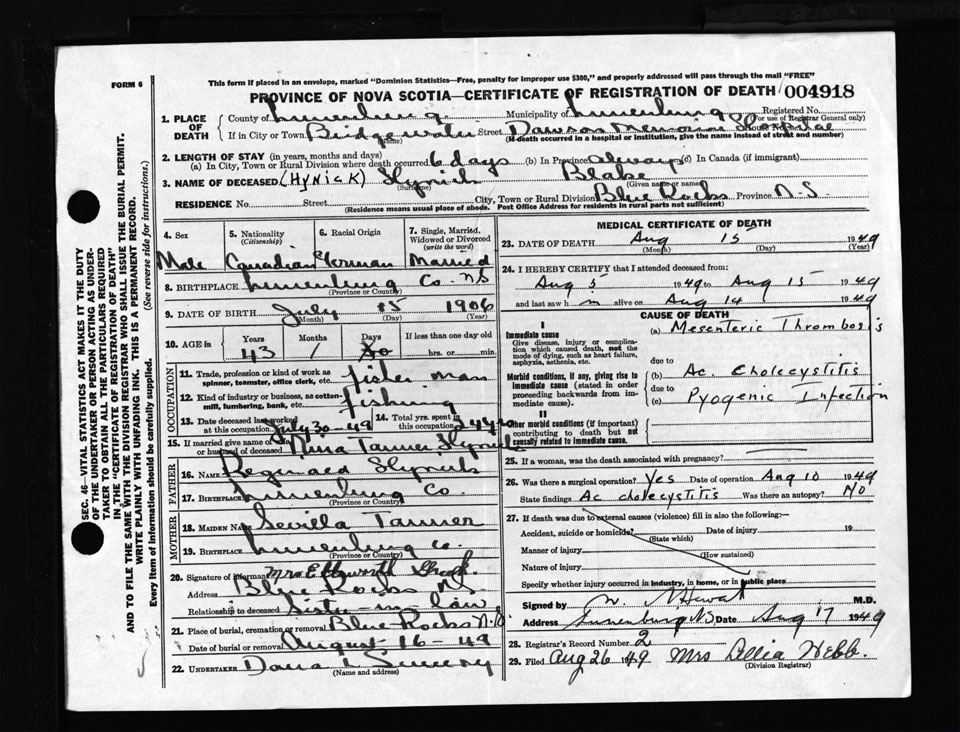 FORM 6
This form if placed in an envelope, marked "Dominion Statistics—Free, penalty for improper use $300," and properly addressed will pass through the mail "FREE"
PROVINCE OF NOVA SCOTIA—CERTIFICATE OF REGISTRATION OF DEATH 004918
1. PLACE OF DEATH
County of Lunenburg Municipality of Lunenburg Registered No.
(For use of Registrar General only)
If in City or Town Bridgewater Street Dawson Memorial Hospital
(Name) (If death occurred in a hospital or institution, give the name instead of street and number)
2. LENGTH OF STAY (in years, months and days)
(a) In City, Town or Rural Division where death occurred 6 days (b) In Province always (c) In Canada (if immigrant)
3. NAME OF DECEASED (HYNICK) Hynick Blake
(Surname) (Given name or names)
RESIDENCE No. Street City, Town or Rural Division Blue Rocks Province N.S
(Residence means usual place of abode. Post Office Address for residents in rural parts not sufficient)
4. Sex
Male
5. Nationality
(Citizenship)
Canadian
6. Racial Origin
German
7. Single, Married, Widowed or Divorced
(write the word)
Married
8. BIRTHPLACE Lunenburg Co. NS
(Province or Country)
9. DATE OF BIRTH July 15 1906
(Month) (Day) (Year)
10. AGE in
Years Months Days If less than one day old
43 1 hrs. or min.
OCCUPATION
11. Trade, profession or kind of work as spinner, teamster, office clerk, etc. fisherman
12. Kind of industry or business, as cotton-mill, lumbering, bank, etc. fishing
13. Date deceased last worked at this occupation July 30-49
14. Total yrs. spent in this occupation 24 yrs
15. If married give name of wife or husband of deceased Nina Tanner Hynick
FATHER
16. NAME Reginald Hynick
17. BIRTHPLACE Lunenburg Co.
(Province or Country)
MOTHER
18. MAIDEN NAME Sevilla Tanner
19. BIRTHPLACE Lunenburg Co.
(Province or Country)
20. Signature of informant Mrs Ellsworth
Address Blue Rocks NS
Relationship to deceased Sister-in-law
21. Place of burial, cremation or removal Blue Rocks N.S
Date of burial or removal August 16-49
22. UNDERTAKER Dana L Sweeny
(Name and address)
MEDICAL CERTIFICATE OF DEATH
23. DATE OF DEATH Aug 15 1949
(Month) (Day) (Year)
24. I HEREBY CERTIFY that I attended deceased from:
Aug 5 1949 to Aug 15 1949
and last saw h m alive on Aug 14 1949
CAUSE OF DEATH
I
Immediate cause
Give disease, injury or complication which caused death, not the mode of dying, such as heart failure, asphyxia, asthenia, etc.
(a) Mesenteric Thrombosis
due to
Morbid conditions, if any, giving rise to immediate cause (stated in order proceeding backwards from immediate cause).
(b) Ac. Cholecystitis
due to
(c) Pyogenic Infection
II
Other morbid conditions (if important) contributing to death but not causally related to immediate cause.
25. If a woman, was the death associated with pregnancy?
26. Was there a surgical operation? Yes Date of operation Aug 10 1949
State findings Ac cholecystitis Was there an autopsy? No
27. If death was due to external causes (violence) fill in also the following:—
Accident, suicide or homicide? Date of injury 19
(State which)
Manner of injury
(How sustained)
Nature of injury
Specify whether injury occurred in industry, in home, or in public place
Signed by M.D.
Address Lunenburg NS Date Aug 17 1949
28. Registrar's Record Number 2
29. Filed Aug 26 1949 Mrs Dellia Webb.
(Division Registrar)
SEC. 46—VITAL STATISTICS ACT MAKES IT THE DUTY
OF THE UNDERTAKER OR PERSON ACTING AS UNDER-
TAKER TO OBTAIN ALL THE PARTICULARS REQUIRED
IN THE "CERTIFICATE OF REGISTRATION OF DEATH"
AND TO FILE THE SAME WITH THE DIVISION REGISTRAR WHO SHALL ISSUE THE BURIAL PERMIT.
WRITE PLAINLY WITH UNFADING INK. THIS IS A PERMANENT RECORD.
Every item of information should be carefully supplied. (See reverse side for instructions.)